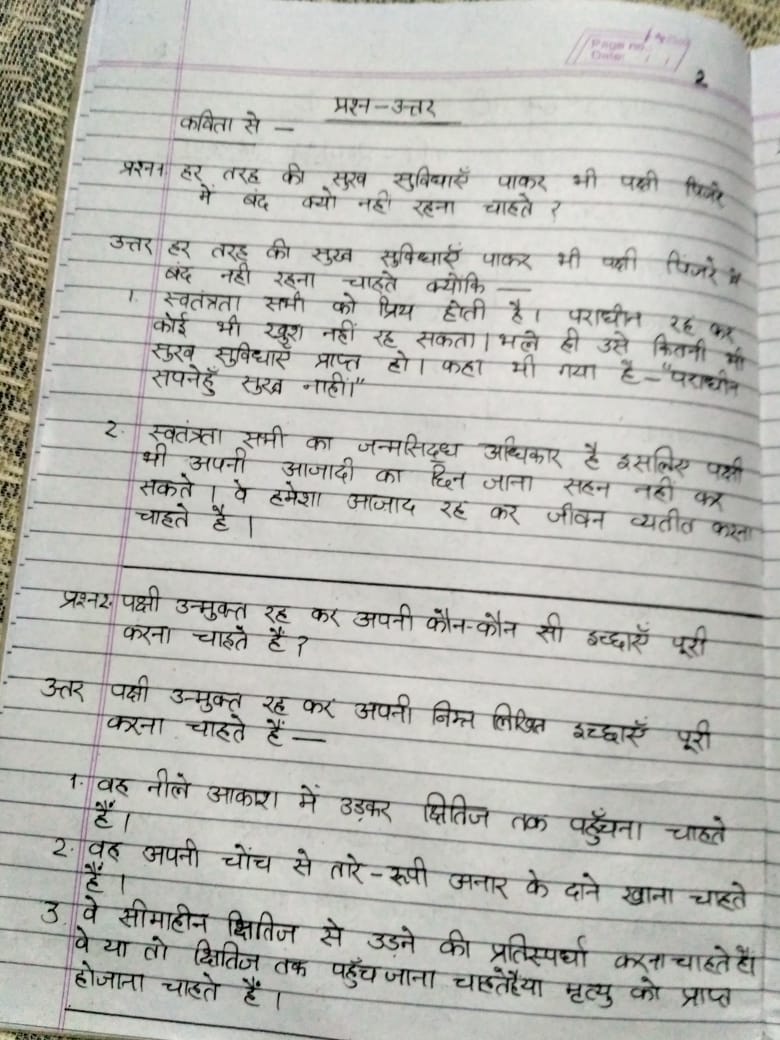 Page no.
Date:
2
प्रश्न-उत्तर
कविता से —
प्रश्न1 हर तरह की सुख सुविधाएँ पाकर भी पक्षी पिंजरे
में बंद क्यों नहीं रहना चाहते ?
उत्तर हर तरह की सुख सुविधाएँ पाकर भी पक्षी पिंजरे में
बंद नहीं रहना चाहते क्योंकि —
1. स्वतंत्रता सभी को प्रिय होती है। पराधीन रह कर
कोई भी खुश नहीं रह सकता। भले ही उसे कितनी भी
सुख सुविधाएँ प्राप्त हो। कहा भी गया है — "पराधीन
सपनेहुँ सुख नाहीं।"
2. स्वतंत्रता सभी का जन्मसिद्ध अधिकार है इसलिए पक्षी
भी अपनी आजादी का छिन जाना सहन नहीं कर
सकते । वे हमेशा आजाद रह कर जीवन व्यतीत करना
चाहते हैं ।
प्रश्न2. पक्षी उन्मुक्त रह कर अपनी कौन-कौन सी इच्छाएँ पूरी
करना चाहते हैं ?
उत्तर पक्षी उन्मुक्त रह कर अपनी निम्न लिखित इच्छाएँ पूरी
करना चाहते हैं —
1. वह नीले आकाश में उड़कर क्षितिज तक पहुँचना चाहते
हैं ।
2. वह अपनी चोंच से तारे-रूपी अनार के दाने खाना चाहते
हैं ।
3. वे सीमाहीन क्षितिज से उड़ने की प्रतिस्पर्धा करना चाहते हैं।
वे या तो क्षितिज तक पहुँच जाना चाहते हैं या मृत्यु को प्राप्त
हो जाना चाहते हैं ।